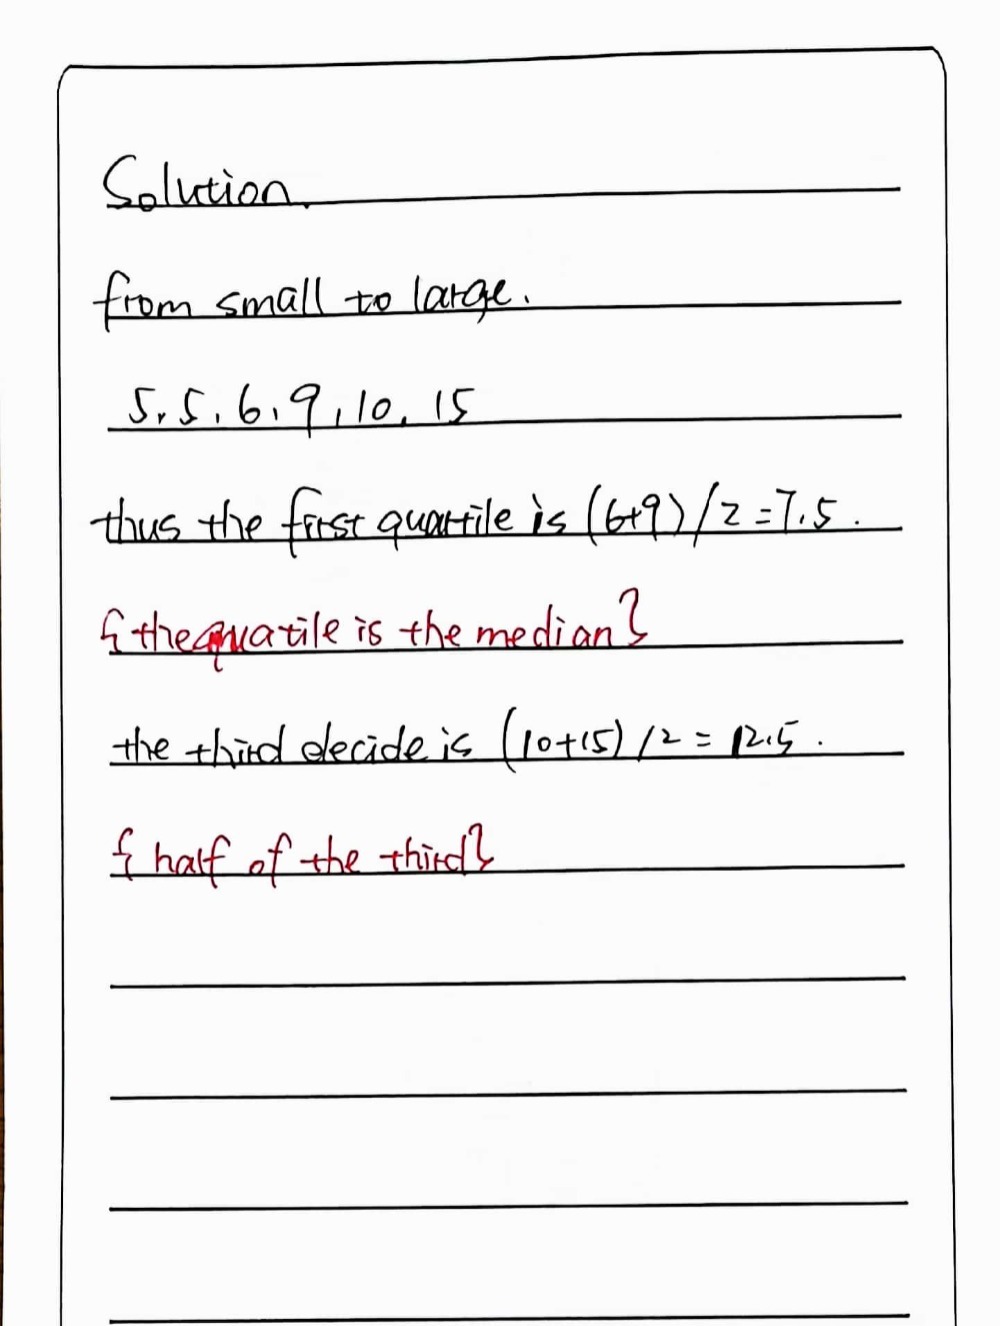 Solution.
from small to large.
5, 5, 6, 9, 10, 15
thus the first quartile is (6+9)/2=7.5.
{the quatile is the median}
the third decide is (10+15)/2=12.5.
{half of the third}